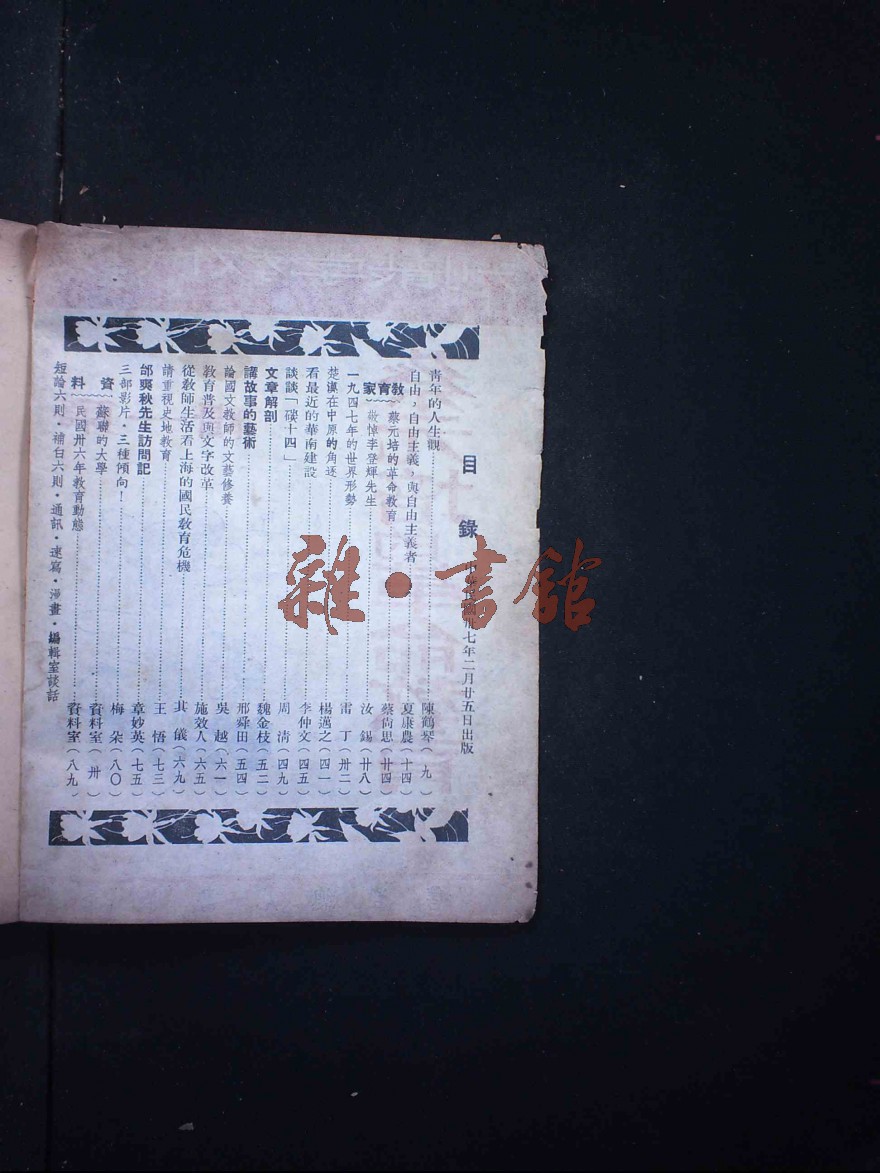 目錄
卅七年二月廿五日出版
青年的人生觀……陳鶴琴(九)
自由，自由主義，與自由主義者……夏康農(十四)
教育家
蔡元培的革命教育……蔡尙思(廿四)
敬悼李登輝先生……汝錫(廿八)
一九四七年的世界形勢……雷丁(卅二)
楚漢在中原的角逐……楊邁之(四一)
看最近的華南建設……李仲文(四五)
談談「碳十四」……周清(四九)
文章解剖……魏金枝(五二)
講故事的藝術……邢舜田(五四)
論國文教師的文藝修養……吳越(六一)
教育普及與文字改革……施效人(六五)
從敎師生活看上海的國民敎育危機……其儀(六九)
請重視史地教育……王悟(七三)
邰爽秋先生訪問記……章妙英(七五)
三部影片·三種傾向！……梅朵(八〇)
資料
蘇聯的大學……資料室(卅)
民國卅六年教育動態……資料室(八九)
短論六則·補白六則·通訊·速寫·漫畫·編輯室談話
雜·書館